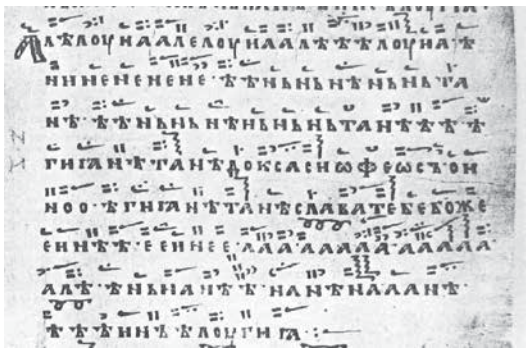 АЛѢЛОУИААЛЕЛОУИААЛѢѢѢЛОУИА·Ѣ
ИННЕНЕНЕНЕ·ѢѢНЬНЬНѢНЬНЬТА
НѢ·ѢѢНЬНЬНѢНЬНЬНЬТАНѢѢѢѢ
ГИГАНѢТАНѢДОКСАСИѠФЕѠСЪОН
НОО·ѢГИГАНѢТАНѢСЛАВАТЕБЕБОЖЕ
ЕИНѢѢ·ЕЕИНЕЕ·ААА·ААААА·ААААА·
АЛѢ·ѢНЬНАНѢѢ·НАНѢНАЛАНѢ·
ѢѢѢИНѢѢЛОУГИГА·